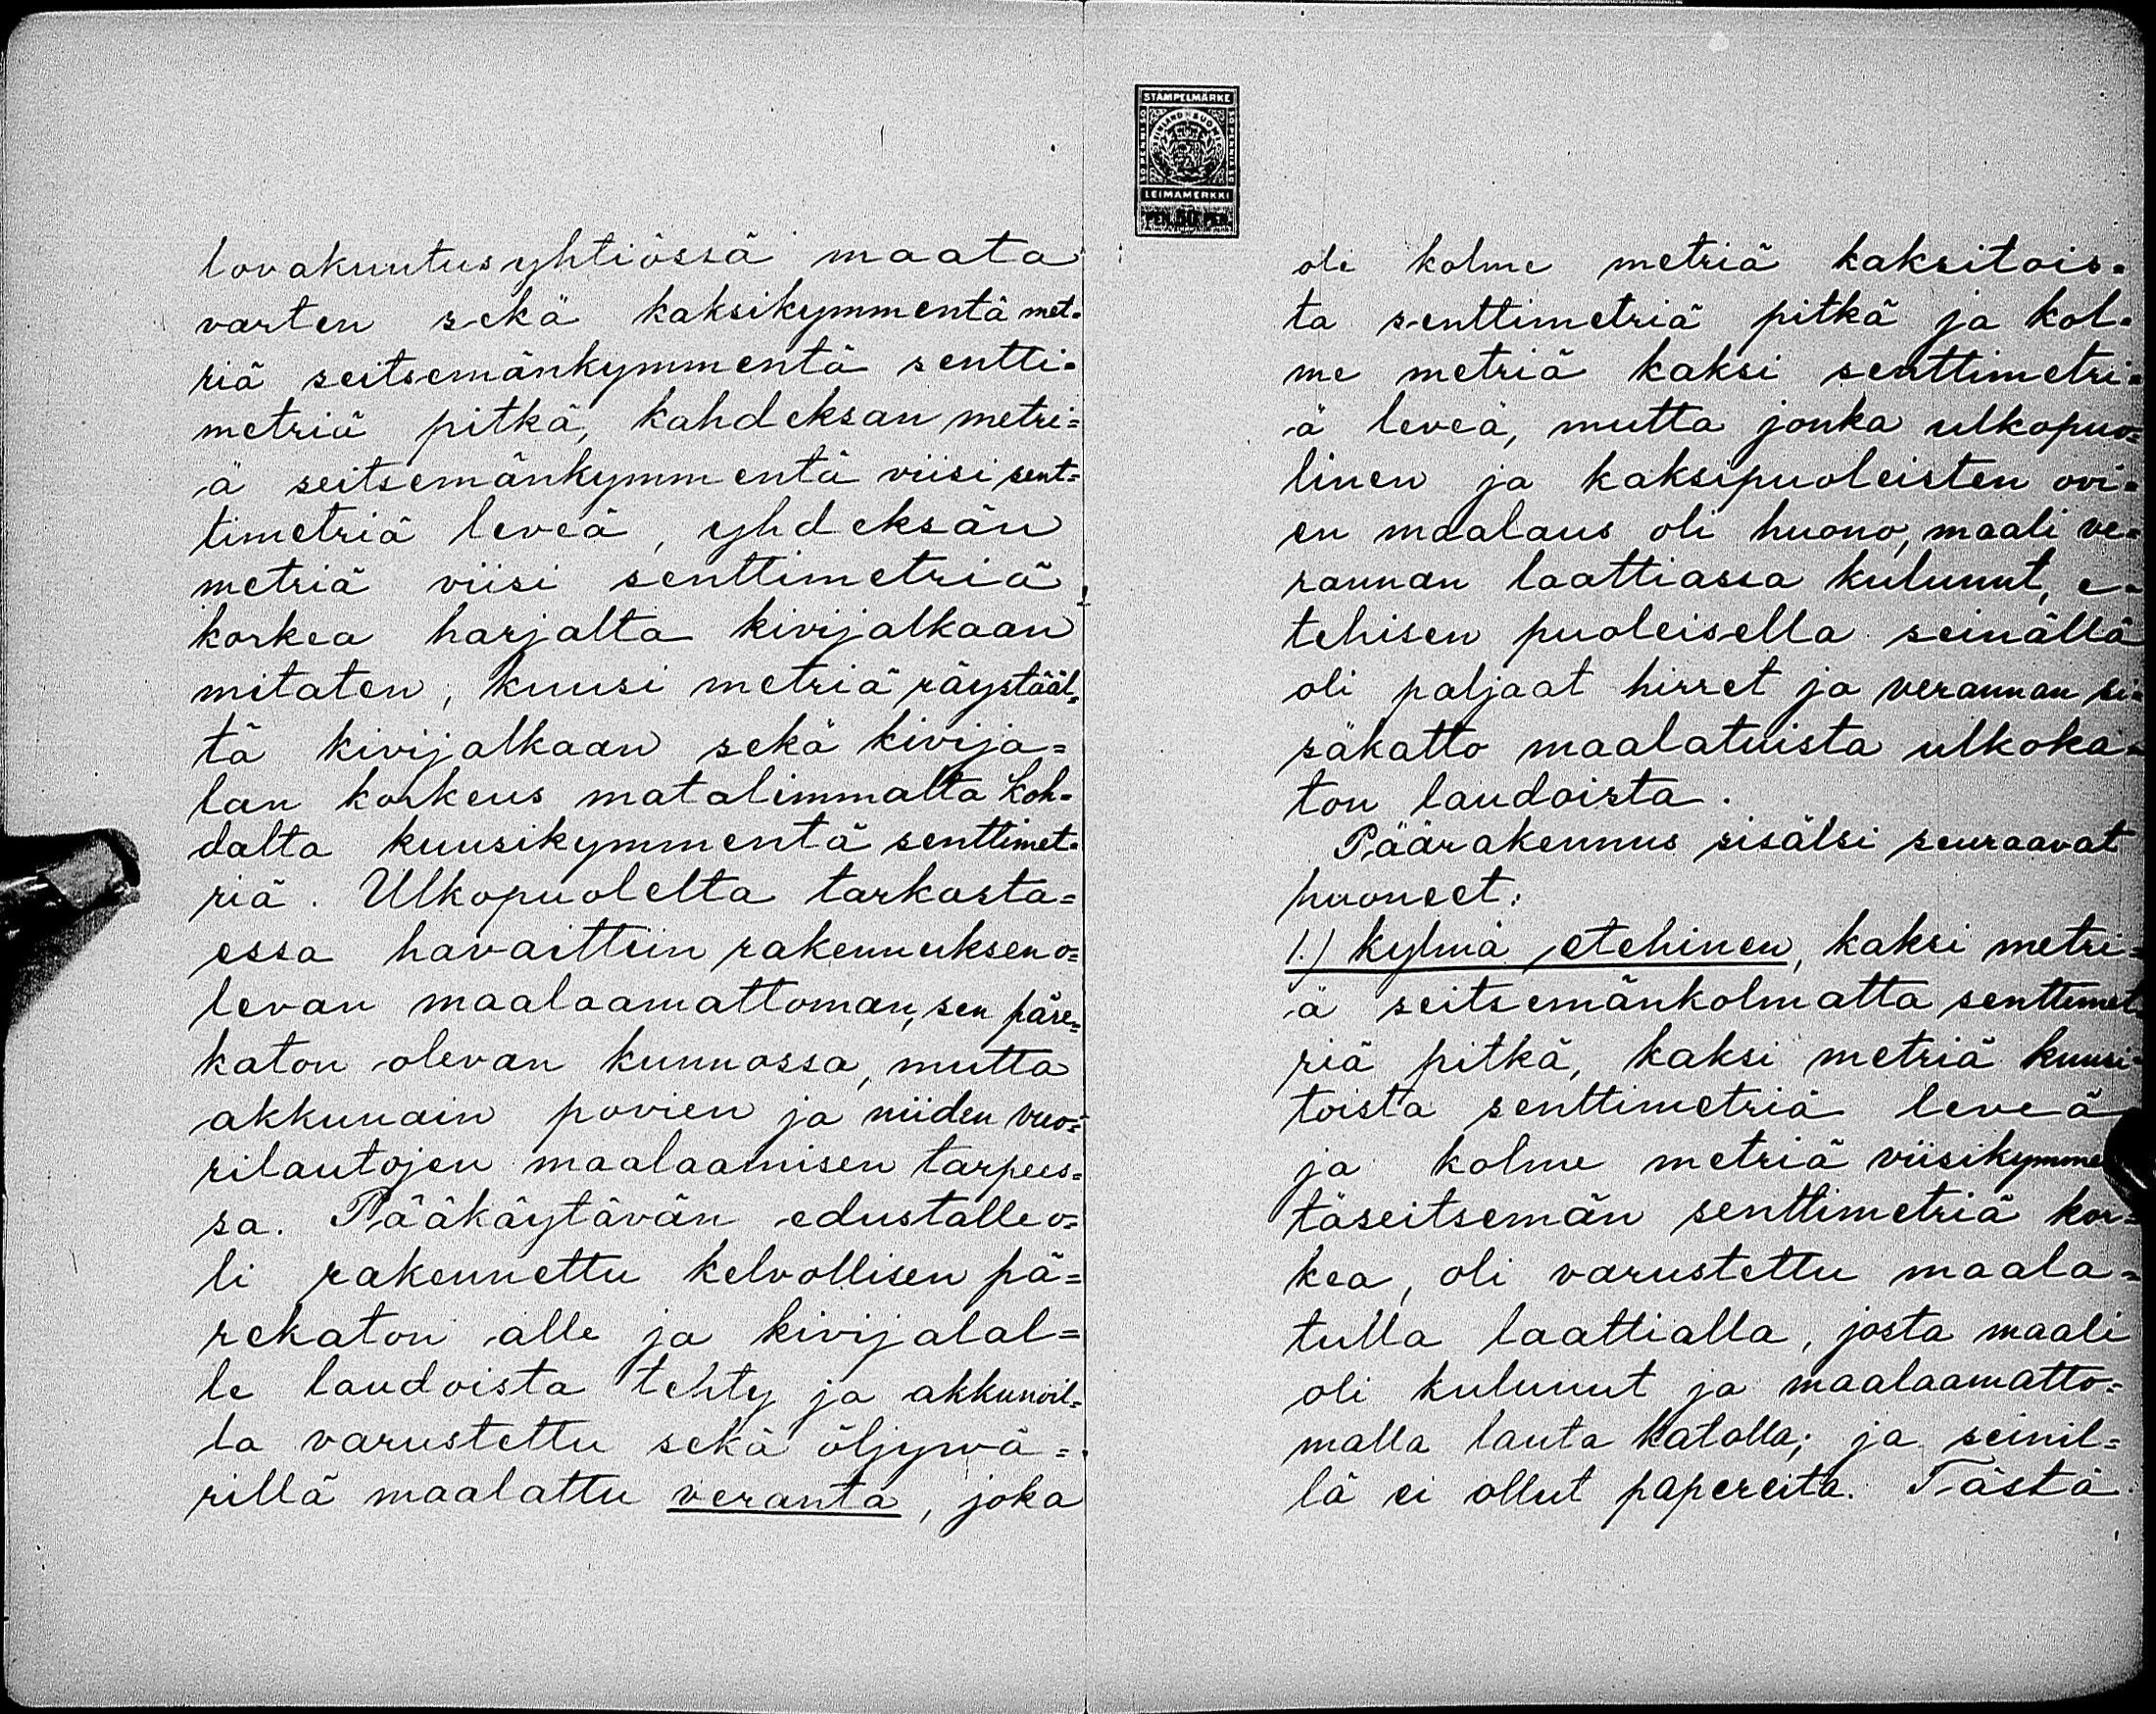 lovakuutusyhtiössä maata
varten sekä kaksikymmentä met-
riä seitsemänkymmentä sentti-
metriä pitkä, kahdeksan metri=
ä seitsemänkymmentä viisi sent=
timetriä leveä, yhdeksän
metriä viisi senttimetriä
korkea harjalta kivijalkaan
mitaten, kuusi metriä räystääl=
tä kivijalkaan sekä kivija=
lan korkeus matalimmalta koh-
dalta kuusikymmentä senttimet-
riä. Ulkopuolelta tarkasta=
essa havaittiin rakennuksen o=
levan maalaamattoman, sen päre=
katon olevan kunnossa, mutta
akkunain povien ja niiden vuo=
rilautojen maalaamisen tarpees=
sa. Pääkäytävän edustalle o=
li rakennettu kelvollisen pä=
rekaton alle ja kivijalal=
le laudoista tehty ja akkunoil=
la varustettu sekä öljyvä=
rillä maalattu veranta, joka
STÄMPELMÄRKE
FINLAND SUOMI
50 PENNI 50
LEIMAMERKKI
PEN. 50 PEN.
oli kolme metriä kaksitois-
ta senttimetriä pitkä ja kol-
me metriä kaksi senttimetri-
ä leveä, mutta jonka ulkopuo=
linen ja kaksipuoleisten ovi-
en maalaus oli huono, maali ve-
rannan laattiassa kulunut, e-
tehisen puoleisella seinällä
oli paljaat hirret ja verannan si-
säkatto maalatuista ulkoka-
ton laudoista.
Päärakennus sisälsi seuraavat
huoneet:
1.) kylmä etehinen, kaksi metri=
ä seitsemänkolmatta senttimet-
riä pitkä, kaksi metriä kuusi-
toista senttimetriä leveä
ja kolme metriä viisikymmen
täseitsemän senttimetriä kor=
kea, oli varustettu maala=
tulla laattialla, josta maali
oli kulunut ja maalaamatto=
malla lauta katolla; ja seinil=
lä ei ollut papereita. Tästä